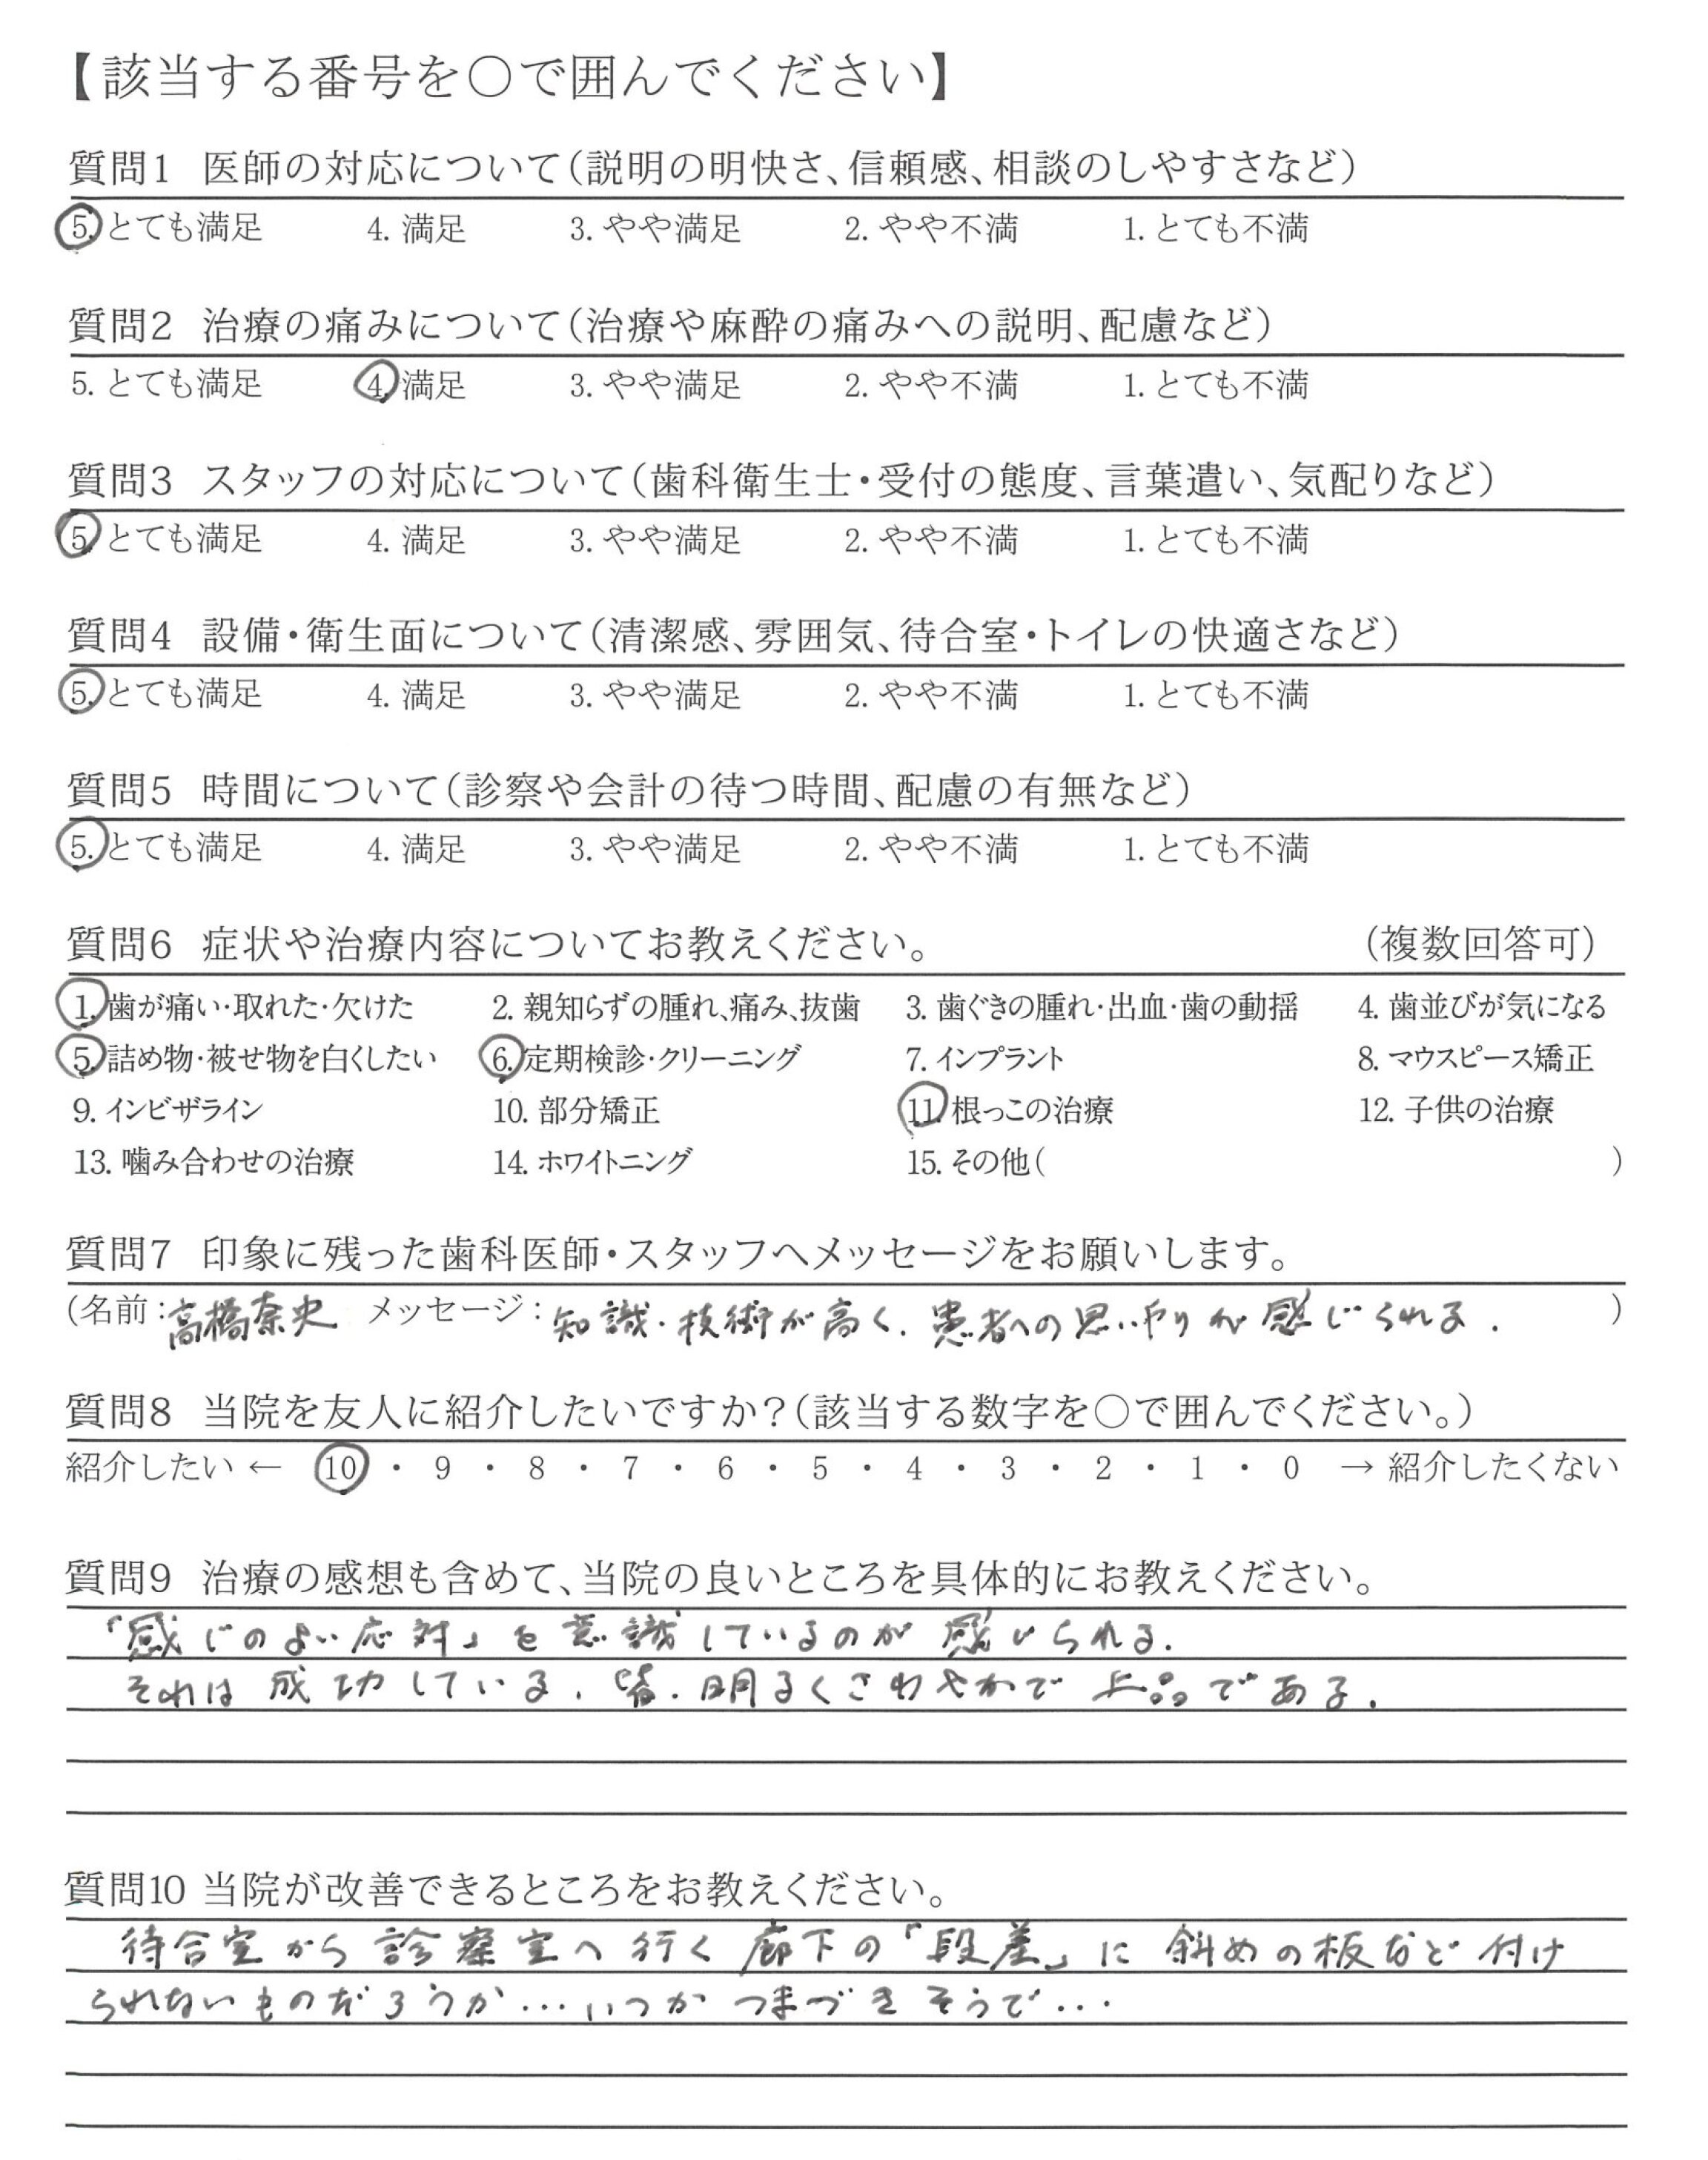 【該当する番号を○で囲んでください】
質問1 医師の対応について（説明の明快さ、信頼感、相談のしやすさなど）
5. とても満足 4. 満足 3. やや満足 2. やや不満 1. とても不満
質問2 治療の痛みについて（治療や麻酔の痛みへの説明、配慮など）
5. とても満足 4. 満足 3. やや満足 2. やや不満 1. とても不満
質問3 スタッフの対応について（歯科衛生士・受付の態度、言葉遣い、気配りなど）
5. とても満足 4. 満足 3. やや満足 2. やや不満 1. とても不満
質問4 設備・衛生面について（清潔感、雰囲気、待合室・トイレの快適さなど）
5. とても満足 4. 満足 3. やや満足 2. やや不満 1. とても不満
質問5 時間について（診察や会計の待つ時間、配慮の有無など）
5. とても満足 4. 満足 3. やや満足 2. やや不満 1. とても不満
質問6 症状や治療内容についてお教えください。 （複数回答可）
1. 歯が痛い・取れた・欠けた 2. 親知らずの腫れ、痛み、抜歯 3. 歯ぐきの腫れ・出血・歯の動揺 4. 歯並びが気になる
5. 詰め物・被せ物を白くしたい 6. 定期検診・クリーニング 7. インプラント 8. マウスピース矯正
9. インビザライン 10. 部分矯正 11. 根っこの治療 12. 子供の治療
13. 噛み合わせの治療 14. ホワイトニング 15. その他（ ）
質問7 印象に残った歯科医師・スタッフへメッセージをお願いします。
（名前：高橋奈史 メッセージ：知識・技術が高く、患者への思いやりが感じられる。 ）
質問8 当院を友人に紹介したいですか？（該当する数字を○で囲んでください。）
紹介したい ← 10 ・ 9 ・ 8 ・ 7 ・ 6 ・ 5 ・ 4 ・ 3 ・ 2 ・ 1 ・ 0 → 紹介したくない
質問9 治療の感想も含めて、当院の良いところを具体的にお教えください。
「感じのよい応対」を意識しているのが感じられる。
それは成功している。皆、明るくさわやかで上品である。
質問10 当院が改善できるところをお教えください。
待合室から診察室へ行く廊下の「段差」に斜めの板など付け
られないものだろうか…いつかつまづきそうで…